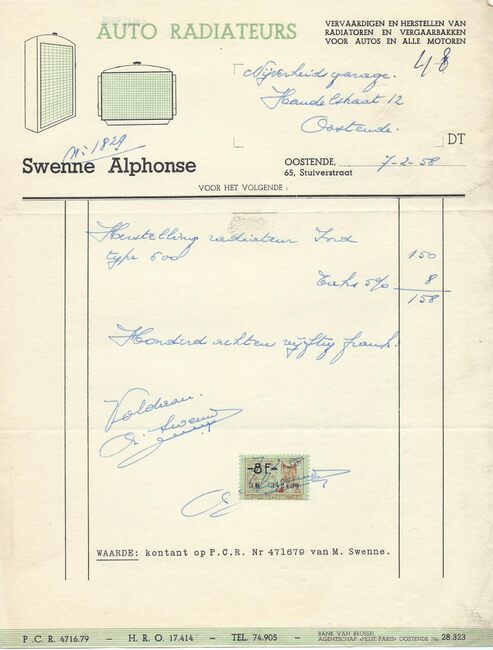 AUTO RADIATEURS
VERVAARDIGEN EN HERSTELLEN VAN
RADIATOREN EN VERGAARBAKKEN
VOOR AUTOS EN ALLE MOTOREN
48
Nijverheidsgarage.
Handelstraat 12
Oostende.
DT
N: 1829
Swenne Alphonse
OOSTENDE, 7-2-58
65, Stuiverstraat
VOOR HET VOLGENDE :
Herstelling radiateur Ford
type 600 150
Taks 5% 8
158
Honderd acht en vijftig frank.
Voldaan.
-8F-
WAARDE: kontant op P.C.R. Nr 471679 van M. Swenne.
P.C.R. 4716.79 - H.R.O. 17.414 - TEL. 74.905 - BANK VAN BRUSSEL
AGENTSCHAP «PETIT PARIS» OOSTENDE No 28.323